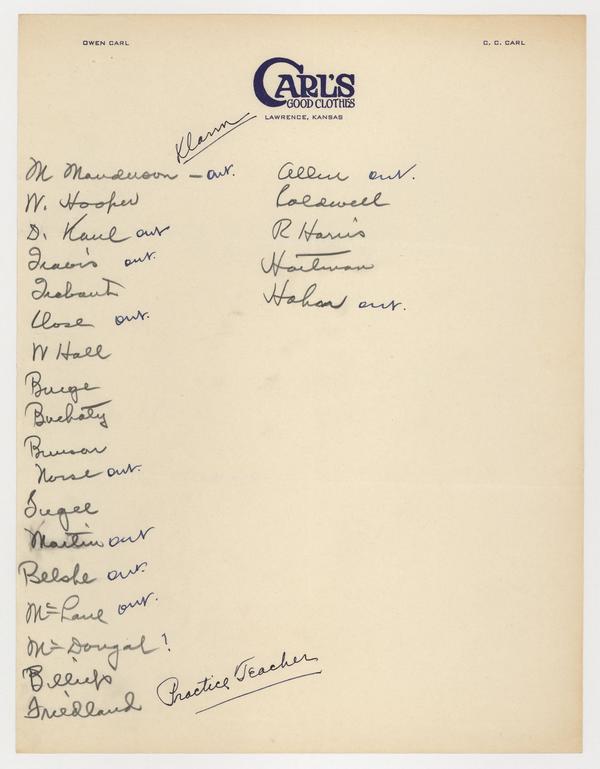 OWEN CARL
C. C. CARL
CARL'S
GOOD CLOTHES
LAWRENCE, KANSAS
M Manderson – out.
W. Hooper
D. Kaul out
Travis out.
Close out.
W Hall
Buege
Buchaty
Brunson
Norse out.
Siegel
Martin out
Belshe out.
McLane out.
McDougal !
Billups
Friedland
Practice Teacher
Allen out.
Caldwell
R Harris
Hartman
Hahn out.